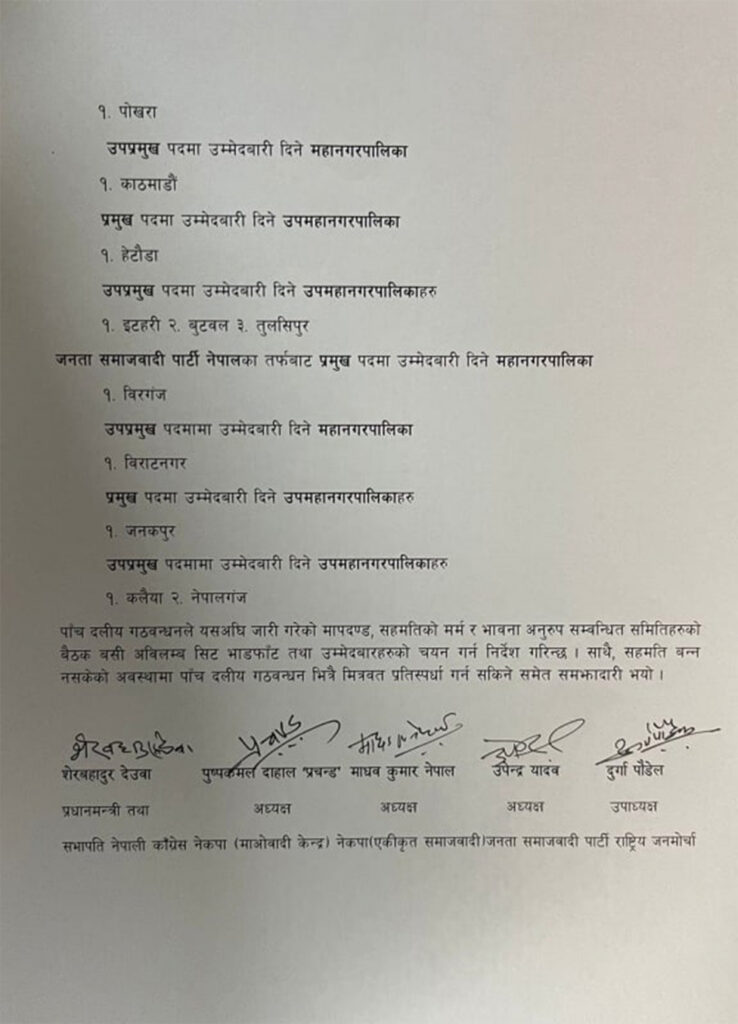 १. पोखरा
उपप्रमुख पदमा उम्मेदबारी दिने महानगरपालिका
१. काठमाडौं
प्रमुख पदमा उम्मेदबारी दिने उपमहानगरपालिका
१. हेटौडा
उपप्रमुख पदमा उम्मेदबारी दिने उपमहानगरपालिकाहरु
१. इटहरी २. बुटवल ३. तुलसिपुर
जनता समाजवादी पार्टी नेपालका तर्फबाट प्रमुख पदमा उम्मेदबारी दिने महानगरपालिका
१. विरगंज
उपप्रमुख पदमामा उम्मेदबारी दिने महानगरपालिका
१. विराटनगर
प्रमुख पदमा उम्मेदबारी दिने उपमहानगरपालिकाहरु
१. जनकपुर
उपप्रमुख पदमामा उम्मेदबारी दिने उपमहानगरपालिकाहरु
१. कलैया २. नेपालगंज
पाँच दलीय गठबन्धनले यसअघि जारी गरेको मापदण्ड, सहमतिको मर्म र भावना अनुरुप सम्बन्धित समितिहरुको
बैठक बसी अबिलम्ब सिट भाडफाँट तथा उम्मेदबारहरुको चयन गर्न निर्देश गरिन्छ । साथै, सहमति बन्न
नसकेको अवस्थामा पाँच दलीय गठबन्धन भित्रै मित्रवत प्रतिस्पर्धा गर्न सकिने समेत समझादारी भयो ।
शेरबहादुर देउवा पुष्पकमल दाहाल 'प्रचन्ड' माधव कुमार नेपाल उपेन्द्र यादव दुर्गा पौडेल
प्रधानमन्त्री तथा अध्यक्ष अध्यक्ष अध्यक्ष उपाध्यक्ष
सभापति नेपाली काँग्रेस नेकपा (माओवादी केन्द्र) नेकपा(एकीकृत समाजवादी)जनता समाजवादी पार्टी राष्ट्रिय जनमोर्चा